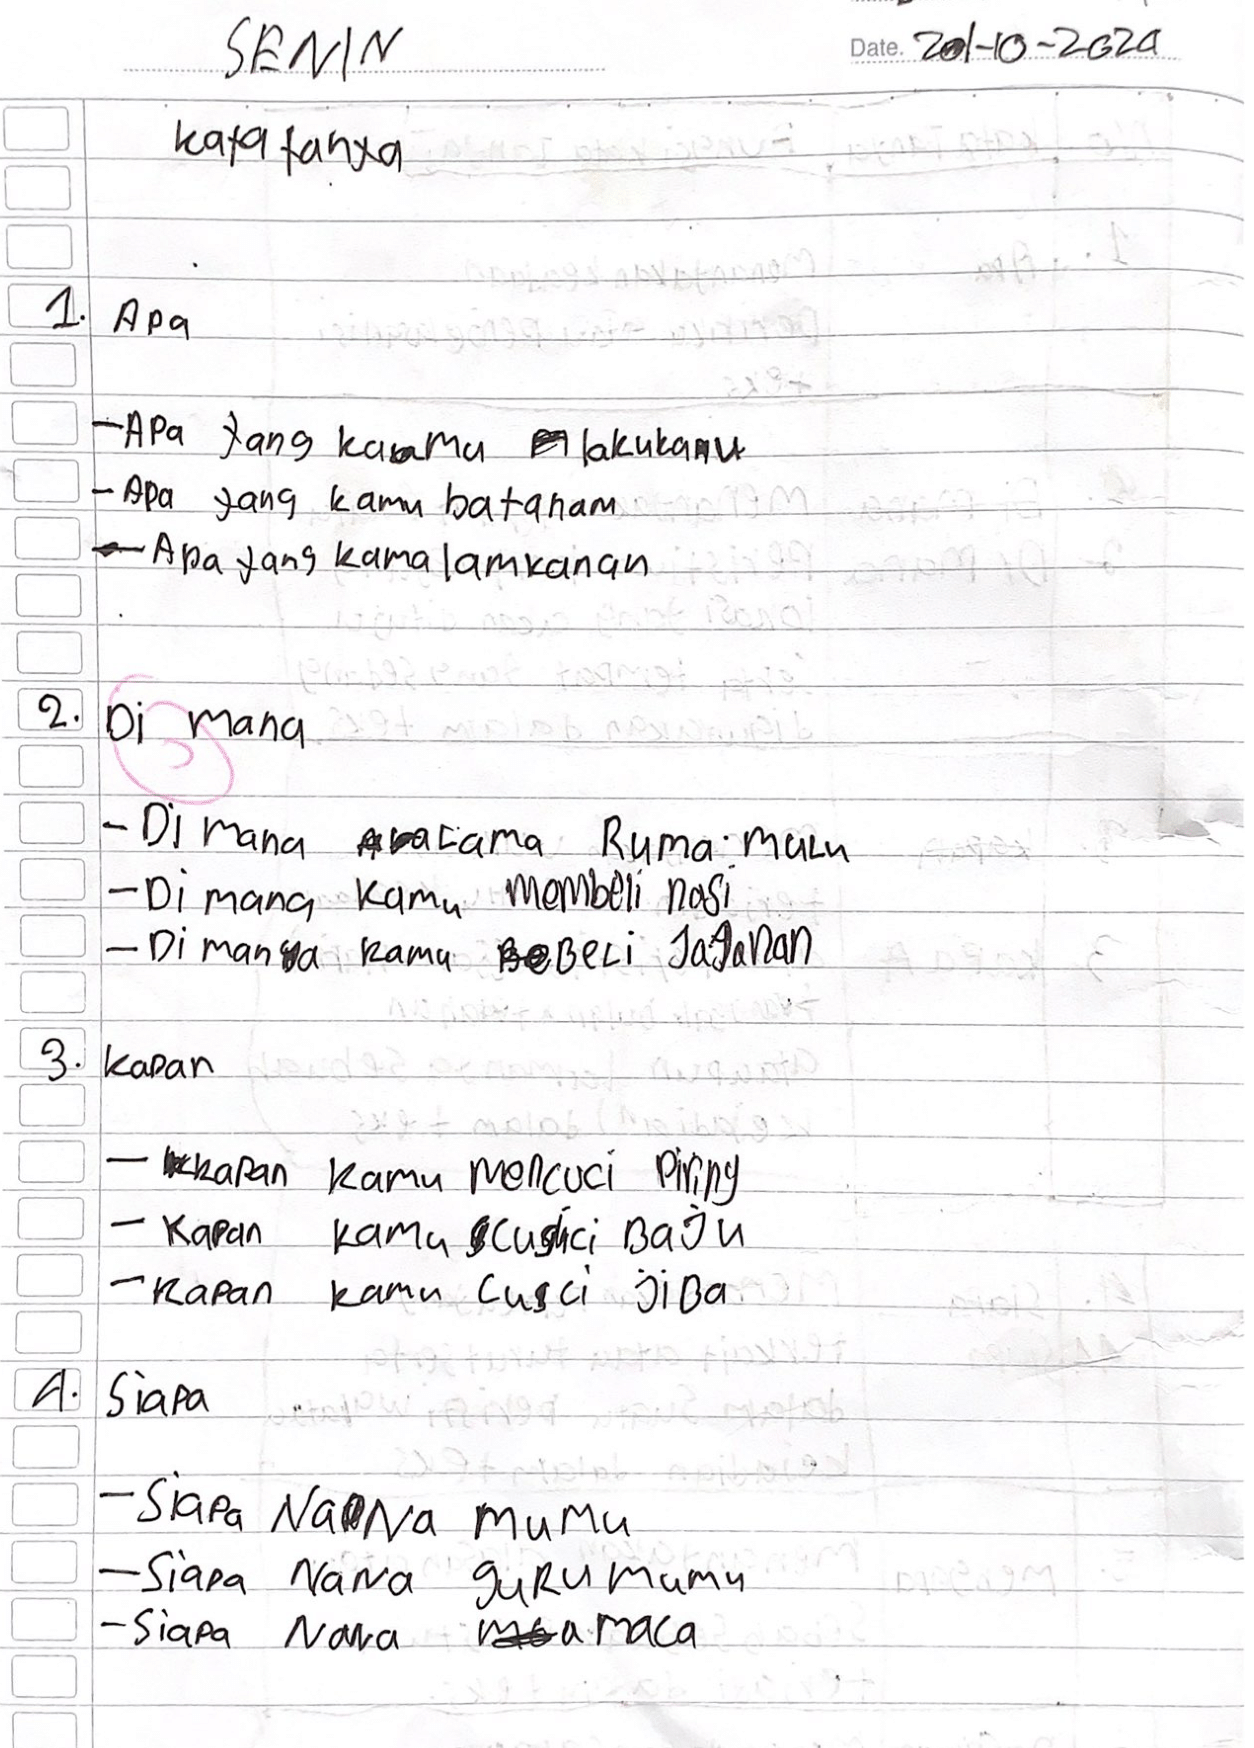 SENIN
Date. 201-10-2024
kata tanya
1. Apa
- Apa yang kamu lakukan
- Apa yang kamu batanam
- Apa yang kama lamkanan
2. Di mana
- Di mana Ruma. muLu
- Di mana kamu membeli nasi
- Di manya kamu BeLi JaJanan
3. kapan
- kapan kamu mencuci piring
- Kapan kamu cusci BaJu
- Kapan kamu Cusci JiBa
4. Siapa
- Siapa NaNa muMu
- Siapa NaNa guRu mumu
- Siapa Nana maca